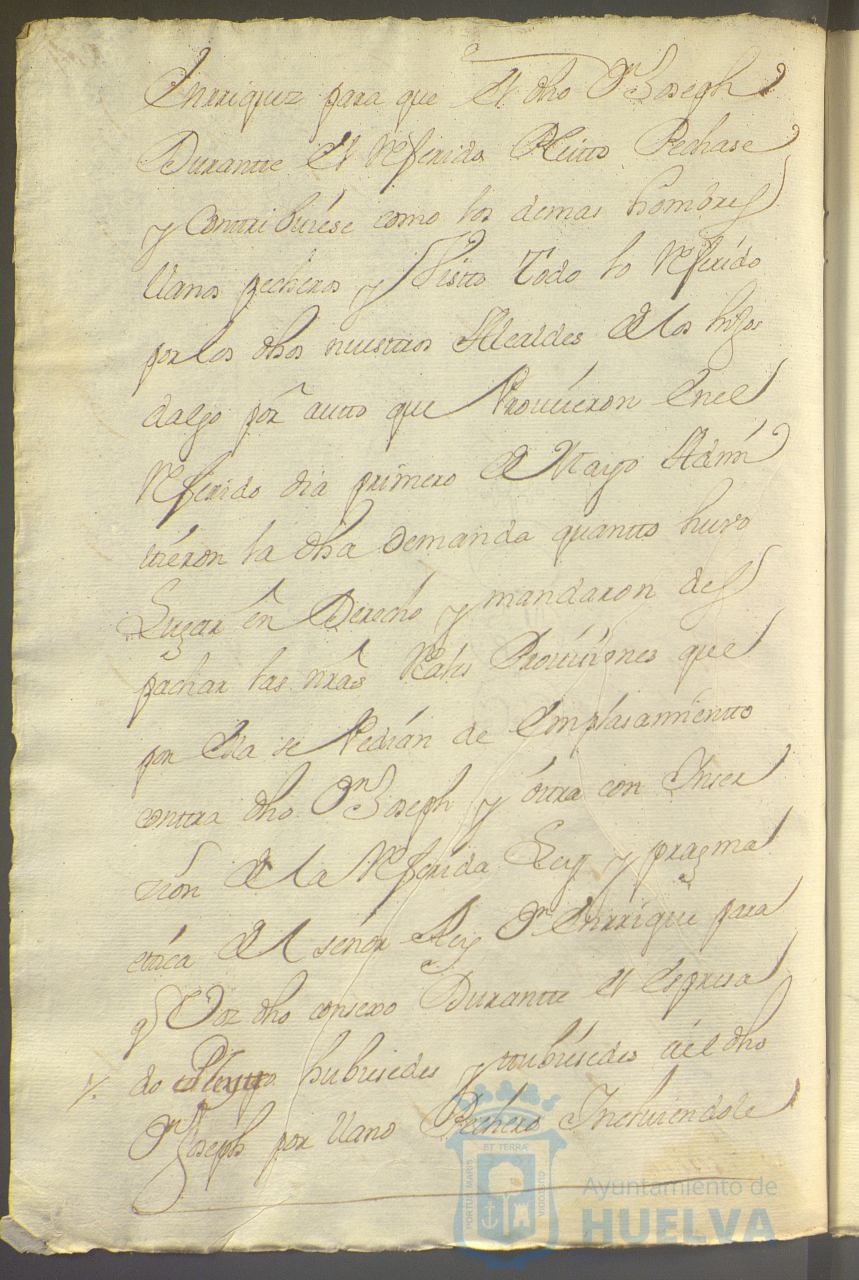 Enrriquez para que El dho Dn Joseph
Durante El Referido Pleitto Pechase
y Conttribuiese como los demas hombres
llanos pecheros y Visto Todo lo Referido
por los dhos nuestros Alcaldes de los hijos
dalgo por autto que Proveieron En el
Referido dia primero de Mayo Admi
tieron la dha Demanda quantto huvo
Lugar en Derecho y mandaron des
pachar las nras Rales Provisiones que
por Ella se Pedian de Emplasamientto
contra dho Dn Joseph y ottra con Inser
zion de la Referida Ley y pragma
ttica del señor Rey Dn Enrrique para
q Vos dho consexo Durantte el Espresa
do Pleytto hubiesedes y ttubiesedes a el dho
Dn Joseph por llano Pechero Incluiendole
PORTUS MARIS
ET TERRAE
CUSTODIA
Ayuntamiento de
HUELVA